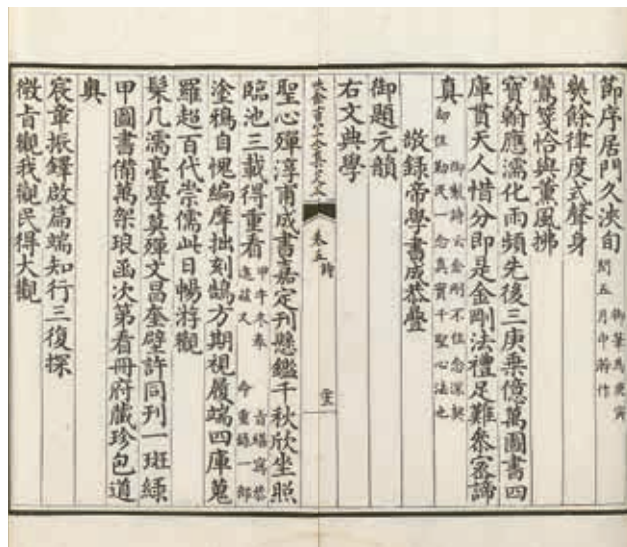 節序居門久浹旬 閏五月中前作 御筆為庚寅
與餘律度式聲身
鸞箋恰與薰風拂
寶翰應濡化雨頻先後三庚乘億萬圖書四
庫貫天人惜分即是金剛法禮足難參密諦
真 御製詩云金剛不住念深契 即住勤民一念真寶千聖心法也
敬錄帝學書成恭疊
御題元韻
右文典學
卷五 詩
聖心殫淳甫成書嘉定刊懸鑑千秋欣坐照
臨池三載得重看 甲午冬奉
塗鴉自愧編摩拙刻鵠方期視履端四庫蒐
羅超百代崇儒此日暢游觀
髹几濡毫學莫殫文昌奎壁許同刊一斑綠
甲圖書備萬架琅函次第看冊府藏珍包道
奧
宸章振鐸啟篇端知行三復探
徵旨觀我觀民得大觀